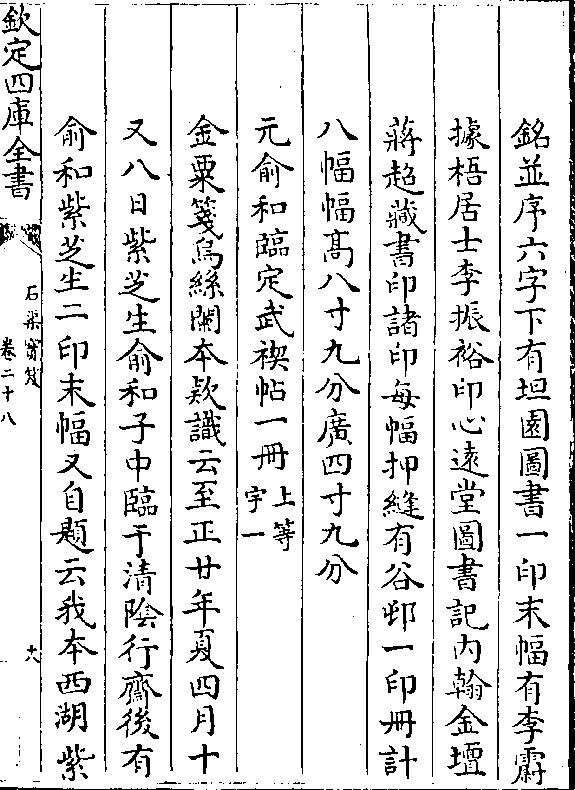 銘並序六字下有坦園圖書一印末幅有李霨
據梧居士李振裕印心遠堂圖書記內翰金壇
蔣超藏書印諸印每幅押縫有谷邨一印冊計
八幅幅髙八寸九分廣四寸九分
元俞和臨定武禊帖一冊上等宇一
金粟箋烏絲闌本款識云至正廿年夏四月十
又八日紫芝生俞和子中臨于清隂行齋後有
俞和紫芝生二印末幅又自題云我本西湖紫
欽定四庫全書
石渠寶笈
卷二十八